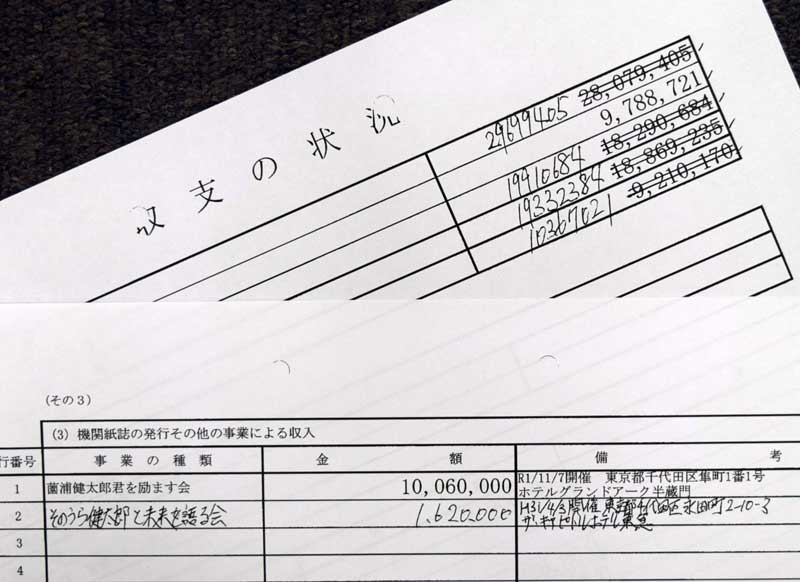 収支の状況
29699405 28,079,405
9,788,721
19910684 18,290,684
19332384 18,869,235
10367021 9,210,170
(その3)
(3) 機関紙誌の発行その他の事業による収入
行番号 事業の種類 金額 備考
1 薗浦健太郎君を励ます会 10,060,000 R1/11/7開催 東京都千代田区隼町1番1号
ホテルグランドアーク半蔵門
2 そのうら健太郎と未来を語る会 1,620,000 H31/4/3開催 東京都千代田区永田町2-10-3
ザ・キャピトルホテル東急
3
4